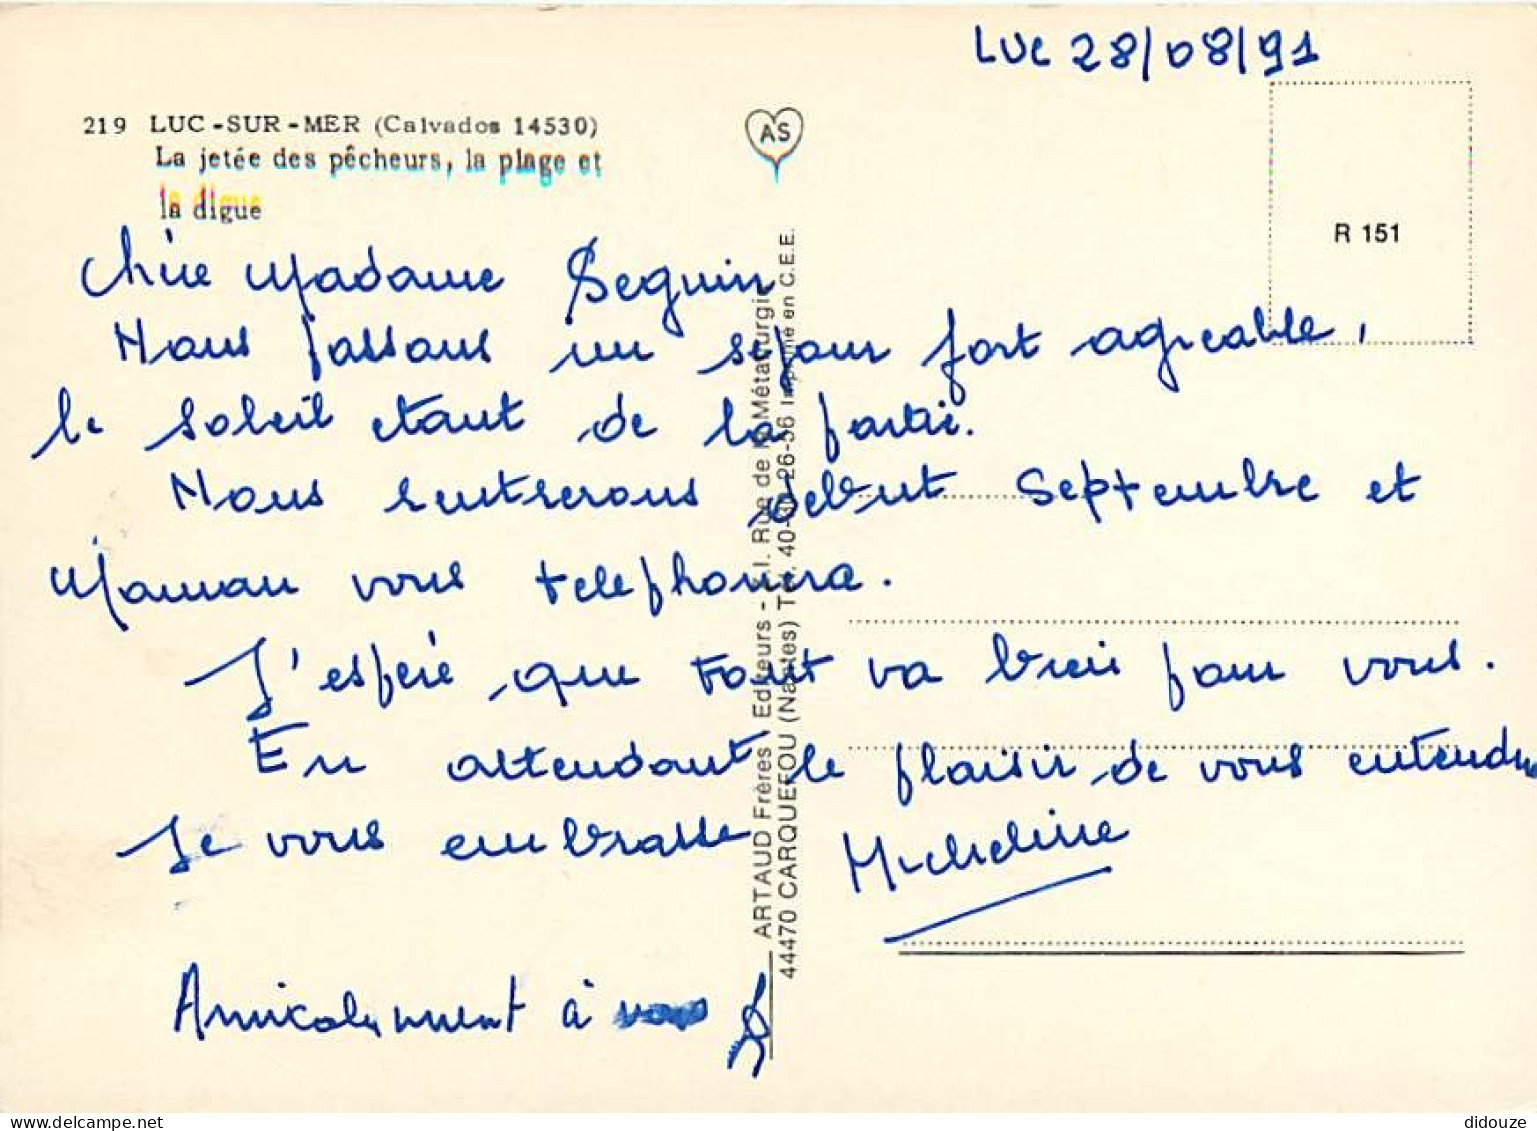 Luc 28/08/91
219 LUC-SUR-MER (Calvados 14530)
La jetée des pêcheurs, la plage et
la digue
AS
R 151
Chère Madame Seguin
Nous passons un séjour fort agreable,
le soleil etant de la partie.
Nous rentrerons debut Septembre et
Maman vous telephonera.
J'espère que tout va bien pour vous.
En attendant le plaisir de vous entendre
Je vous embrasse Micheline
Amicalement à vous
ARTAUD Frères Editeurs - Z.I. Rue de la Métallurgie
44470 CARQUEFOU (Nantes) Tél. 40-30-26-56 Imprimé en C.E.E.
delcampe.net
didouze